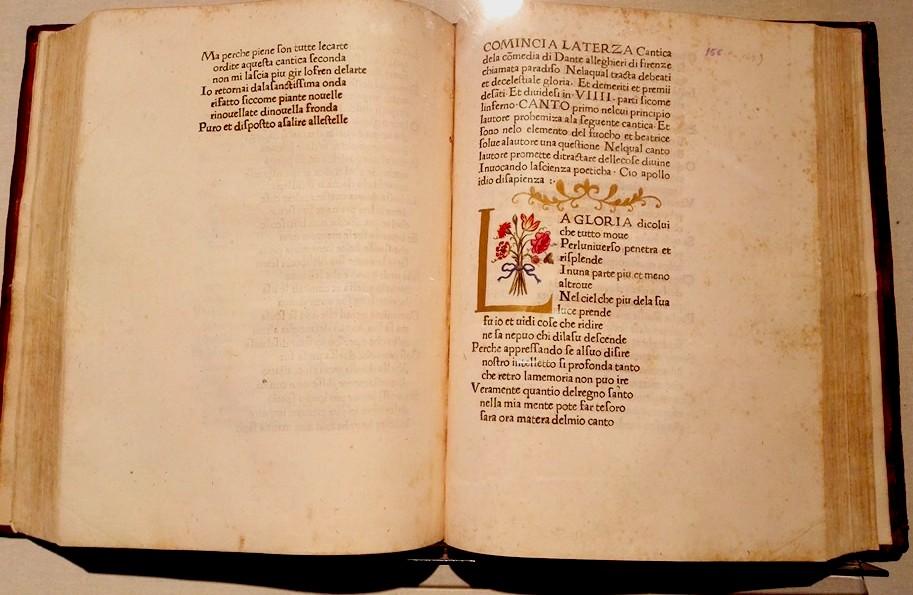 Ma perche piene ſon tutte lecarte
ordite aqueſta cantica ſeconda
non mi laſcia piu gir lofren delarte
Io retornai dalaſanctiſſima onda
rifatto ſiccome piante nouelle
rinouellate dinouella fronda
Puro et diſpoſtto aſalire alleſtelle
COMINCIA LATERZA Cantica
dela cōmedia di Dante alleghieri di firenze
chiamata paradiſo Nelaqual tracta debeati
et deceleſtiale gloria. Et demeriti et premii
deſāti. Et diuideſi in. VIIII. parti ſicome
linferno. CANTO primo nelcui principio
lautore prohemiza ala ſeguente cantica. Et
ſono nelo elemento del fuocho et beatrice
ſolue alautore una queſtione Nelqual canto
lautore promette ditractare dellecoſe diuine
Inuocando laſcienza poeticha. Cio apollo
idio diſapienza :.
LA GLORIA dicolui
che tutto moue
Perluniuerſo penetra et
riſplende
Inuna parte piu et meno
altroue
Nelcielche piu dela ſua
luce prende
fu io et uidi coſe che ridire
ne ſa nepuo chi dilaſu deſcende
Perche appreſſando ſe alſuo diſire
noſtro intelletto ſi profonda tanto
che retro lamemoria non puo ire
Veramente quantio delregno ſanto
nella mia mente pote far teſoro
ſara ora matera delmio canto